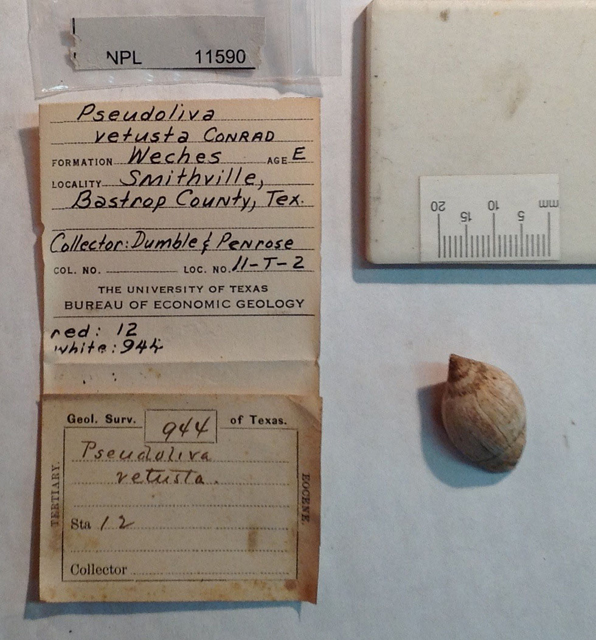 NPL 11590
Pseudoliva
vetusta CONRAD
FORMATION Weches AGE E
LOCALITY Smithville,
Bastrop County, Tex.
Collector: Dumble & Penrose
COL. NO. LOC. NO. 11-T-2
THE UNIVERSITY OF TEXAS
BUREAU OF ECONOMIC GEOLOGY
red: 12
white: 944
Geol. Surv. 944 of Texas.
Pseudoliva
vetusta.
TERTIARY.
EOCENE.
Sta 12
Collector
20 15 10 5 mm